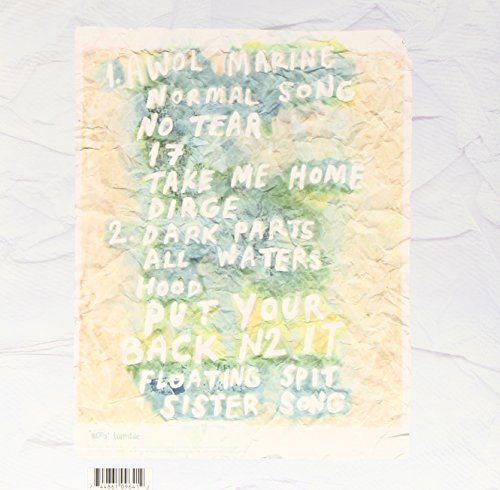 1. AWOL MARINE
NORMAL SONG
NO TEAR
17
TAKE ME HOME
DIRGE
2. DARK PARTS
ALL WATERS
HOOD
PUT YOUR
BACK N2 IT
FLOATING SPIT
SISTER SONG
44861 09641